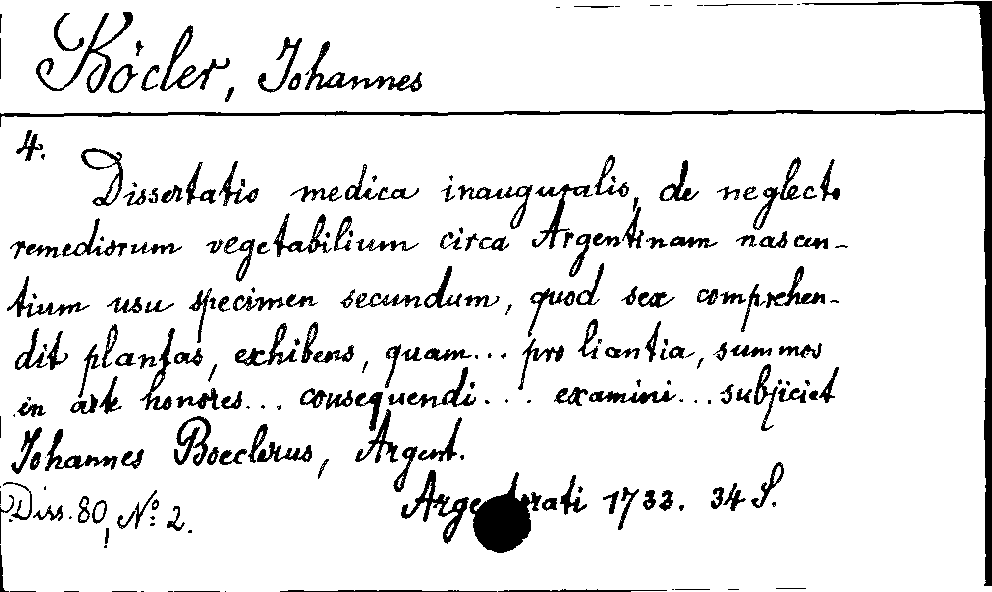 Böcler, Johannes
4.
Dissertatio medica inauguralis, de neglecto
remediorum vegetabilium circa Argentinam nascen-
tium usu specimen secundum, quod sex comprehen-
dit plantas, exhibens, quam... pro liantia, summos
in arte honores... consequendi... examini... subjiciet
Johannes Boeclerus, Argent.
Argentorati 1733. 34 S.
Diss. 80, No. 2.